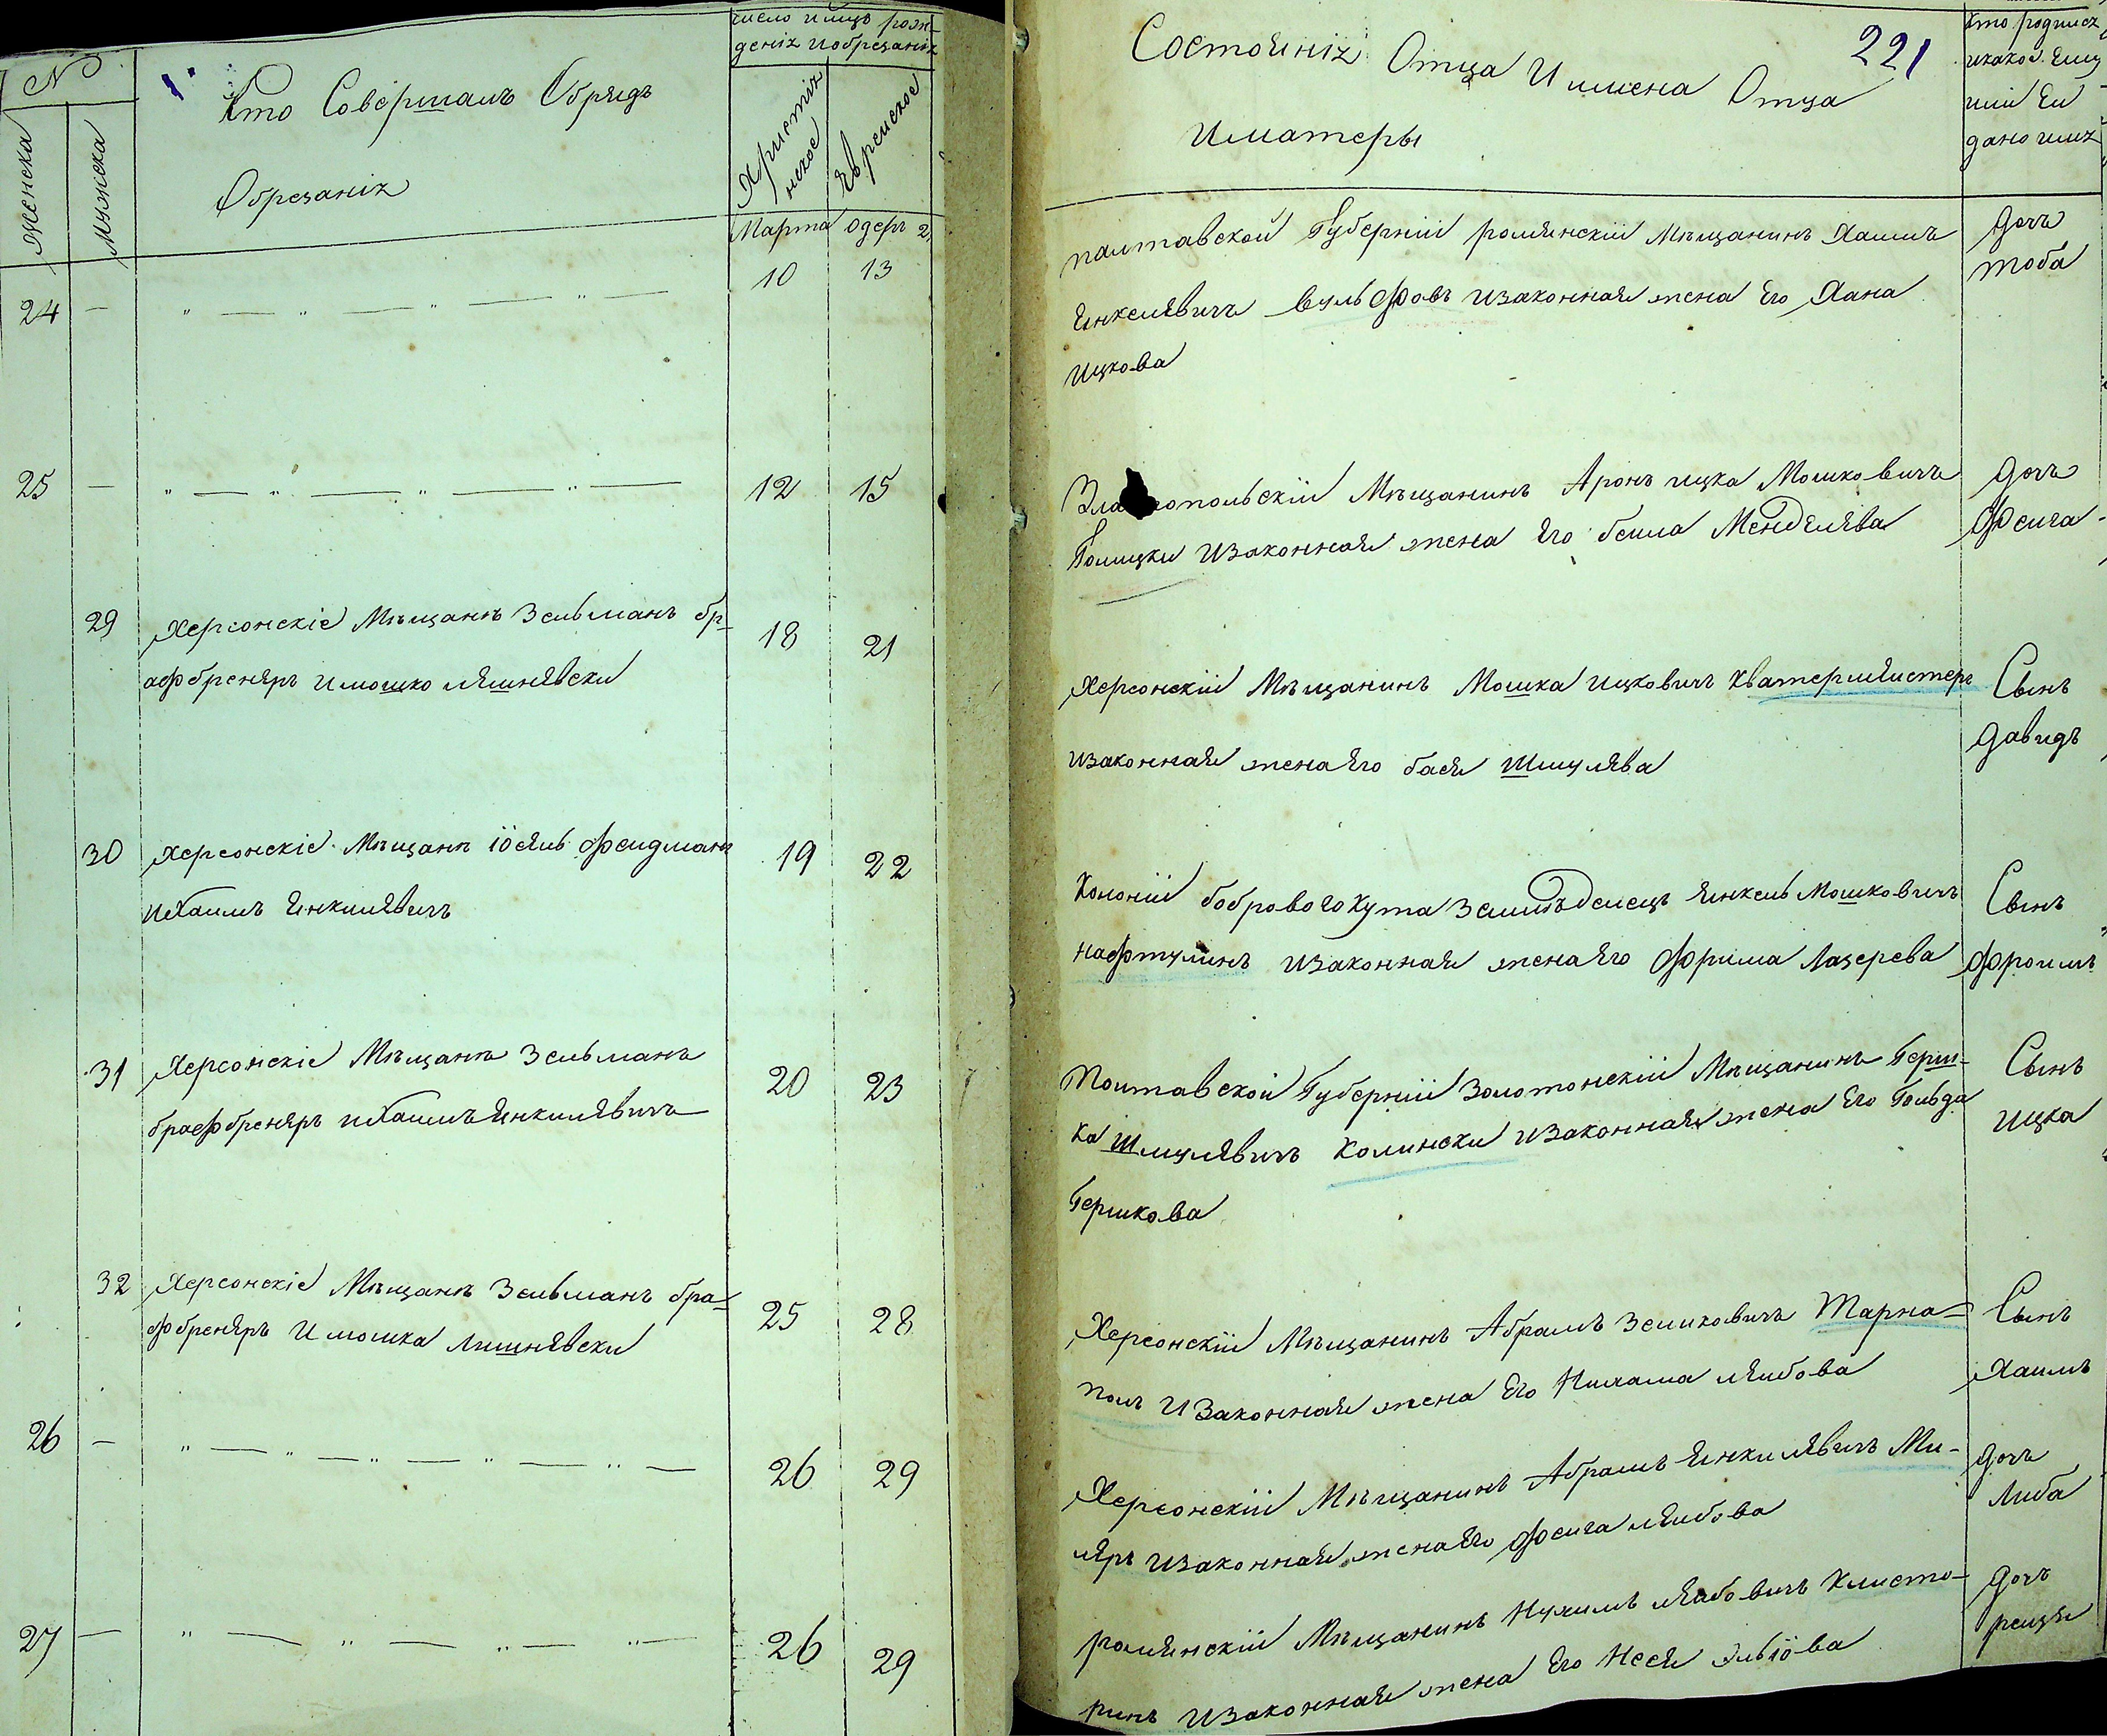 №
женска
мужеска
1
Кто Совершалъ Обрядъ
Обрезанія
число имцъ рож-
денія иобрезанія
Христія
нское
Еврейское
Марта
одеръ 2
24 — „ — „ — „ — „ — 10 13
25 — „ — „ — „ — „ — 12 15
29 Херсонскіе Мѣщанъ Зельманъ бр-
афбренеръ имошко ляшнявски
18 21
30 Херсонскіе Мѣщанъ іосяль фелдманъ
ихаимъ Янкилявичъ
19 22
31 Херсонскіе Мѣщанъ Зельманъ
брафбренеръ ихаимъ Янкилявичъ
20 23
32 Херсонскіе Мѣщанъ Зельманъ бра-
фбренеръ Имошка Лишнявски
25 28
26 — „ — „ — „ — „ — „ — 26 29
27 — „ — „ — „ — „ — 26 29
Состояніи Отца Иимена Отца
221
Иматеры
Кто родился
икакое Ему
или Ей
дано имя
палтавской Губерніи ромянскій Мѣщанинъ Хаимъ
Янкелявичъ Вульфовъ изаконная жена Его Хана
Ицкова
дочъ
тоба
Зла опольскій Мѣщанинъ Аронъ ицка Мошковичъ
Голицки изаконная жена Его беила Мендялява
дочъ
Феига
Херсонскій Мѣщанинъ Мошка ицковичъ Кватермяистеръ
изаконная жена Его бася Шмулява
Сынъ
давидъ
Колоніи боброваго Кута Земледѣлецъ Янкель Мошковичъ
нафтулинъ изаконная жена Его Фрима Лазерева
Сынъ
Фроимъ
Полтавской Губерніи Золотонскій Мѣщанинъ Герш-
ка Шмулявичъ Калински изаконная жена Его Гольда
Гершкова
Сынъ
ицка
Херсонскій Мѣщанинъ Абрамъ Зеликовичъ Тарна-
поль Изаконная жена Его Нихама ляибова
Сынъ
Хаимъ
Херсонскій Мѣщанинъ Абрамъ Янкилявичъ Ми-
ляръ изаконная жена Его Феига ляибова
дочъ
Либа
ромянскій Мѣщанинъ Нухимъ ляибовичъ Клисто-
ринъ изаконная жена Его Нося эльіова
дочъ
реизя